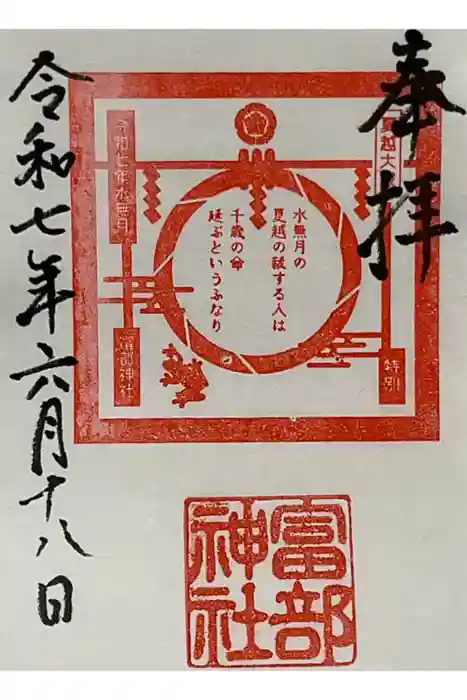 奉拝
夏越大
特別
水無月の
夏越の祓する人は
千歳の命
延ぶといふなり
令和七年水無月
富部神社
令和七年六月十八日
富部
神社